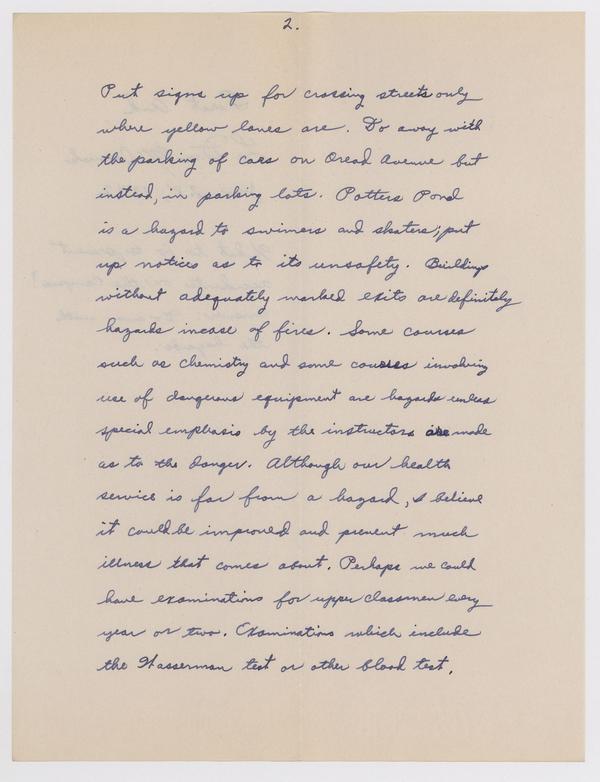 2.
Put signs up for crossing streets only
where yellow lanes are. Do away with
the parking of cars on Oread Avenue but
instead, in parking lots. Potters Pond
is a hazard to swimers and skaters; put
up notices as to its unsafety. Buildings
without adequately marked exits are definitely
hazards incase of fires. Some courses
such as chemistry and some courses involving
use of dangerous equipment are hazards unless
special emphasis by the instructors are made
as to the danger. Although our health
service is far from a hazard, I believe
it could be improved and prevent much
illness that comes about. Perhaps we could
have examinations for upper classmen every
year or two. Examinations which include
the Wasserman test or other blood test.